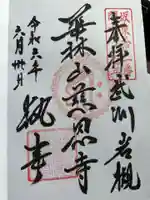 奉拝 武州岩槻
華林山慈恩寺
執事
令和六年
六月卅日